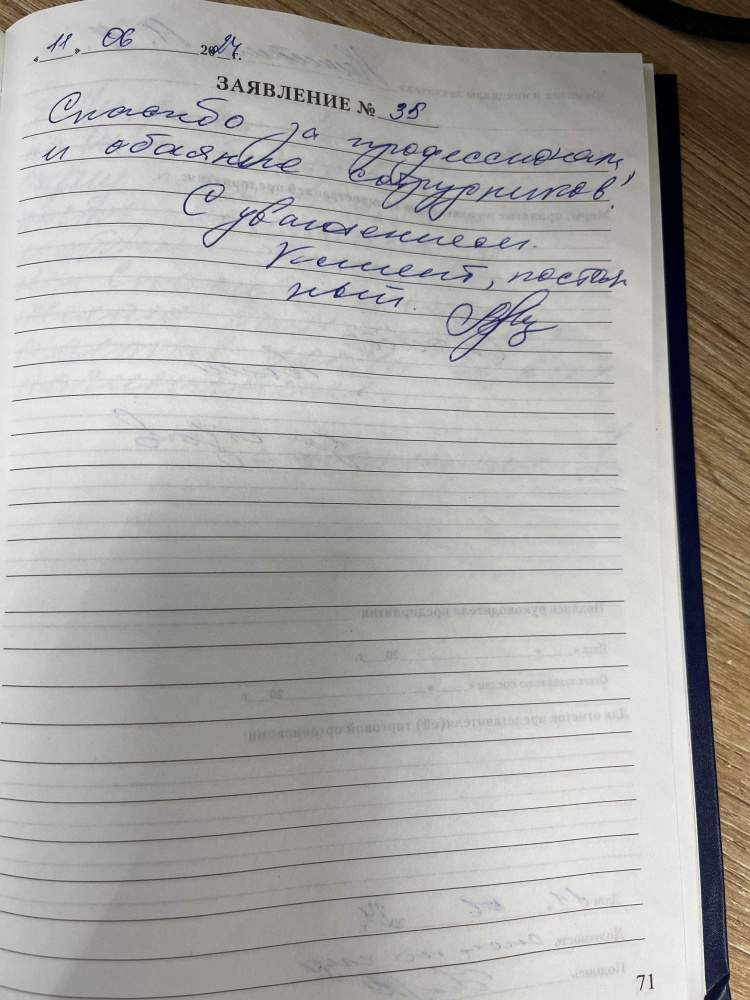 « 11 » 06 2024 г.
ЗАЯВЛЕНИЕ № 38
Спасибо за профессионализм,
и обаяние сотрудников!
С уважением.
Клиент, постоян
ный.
71